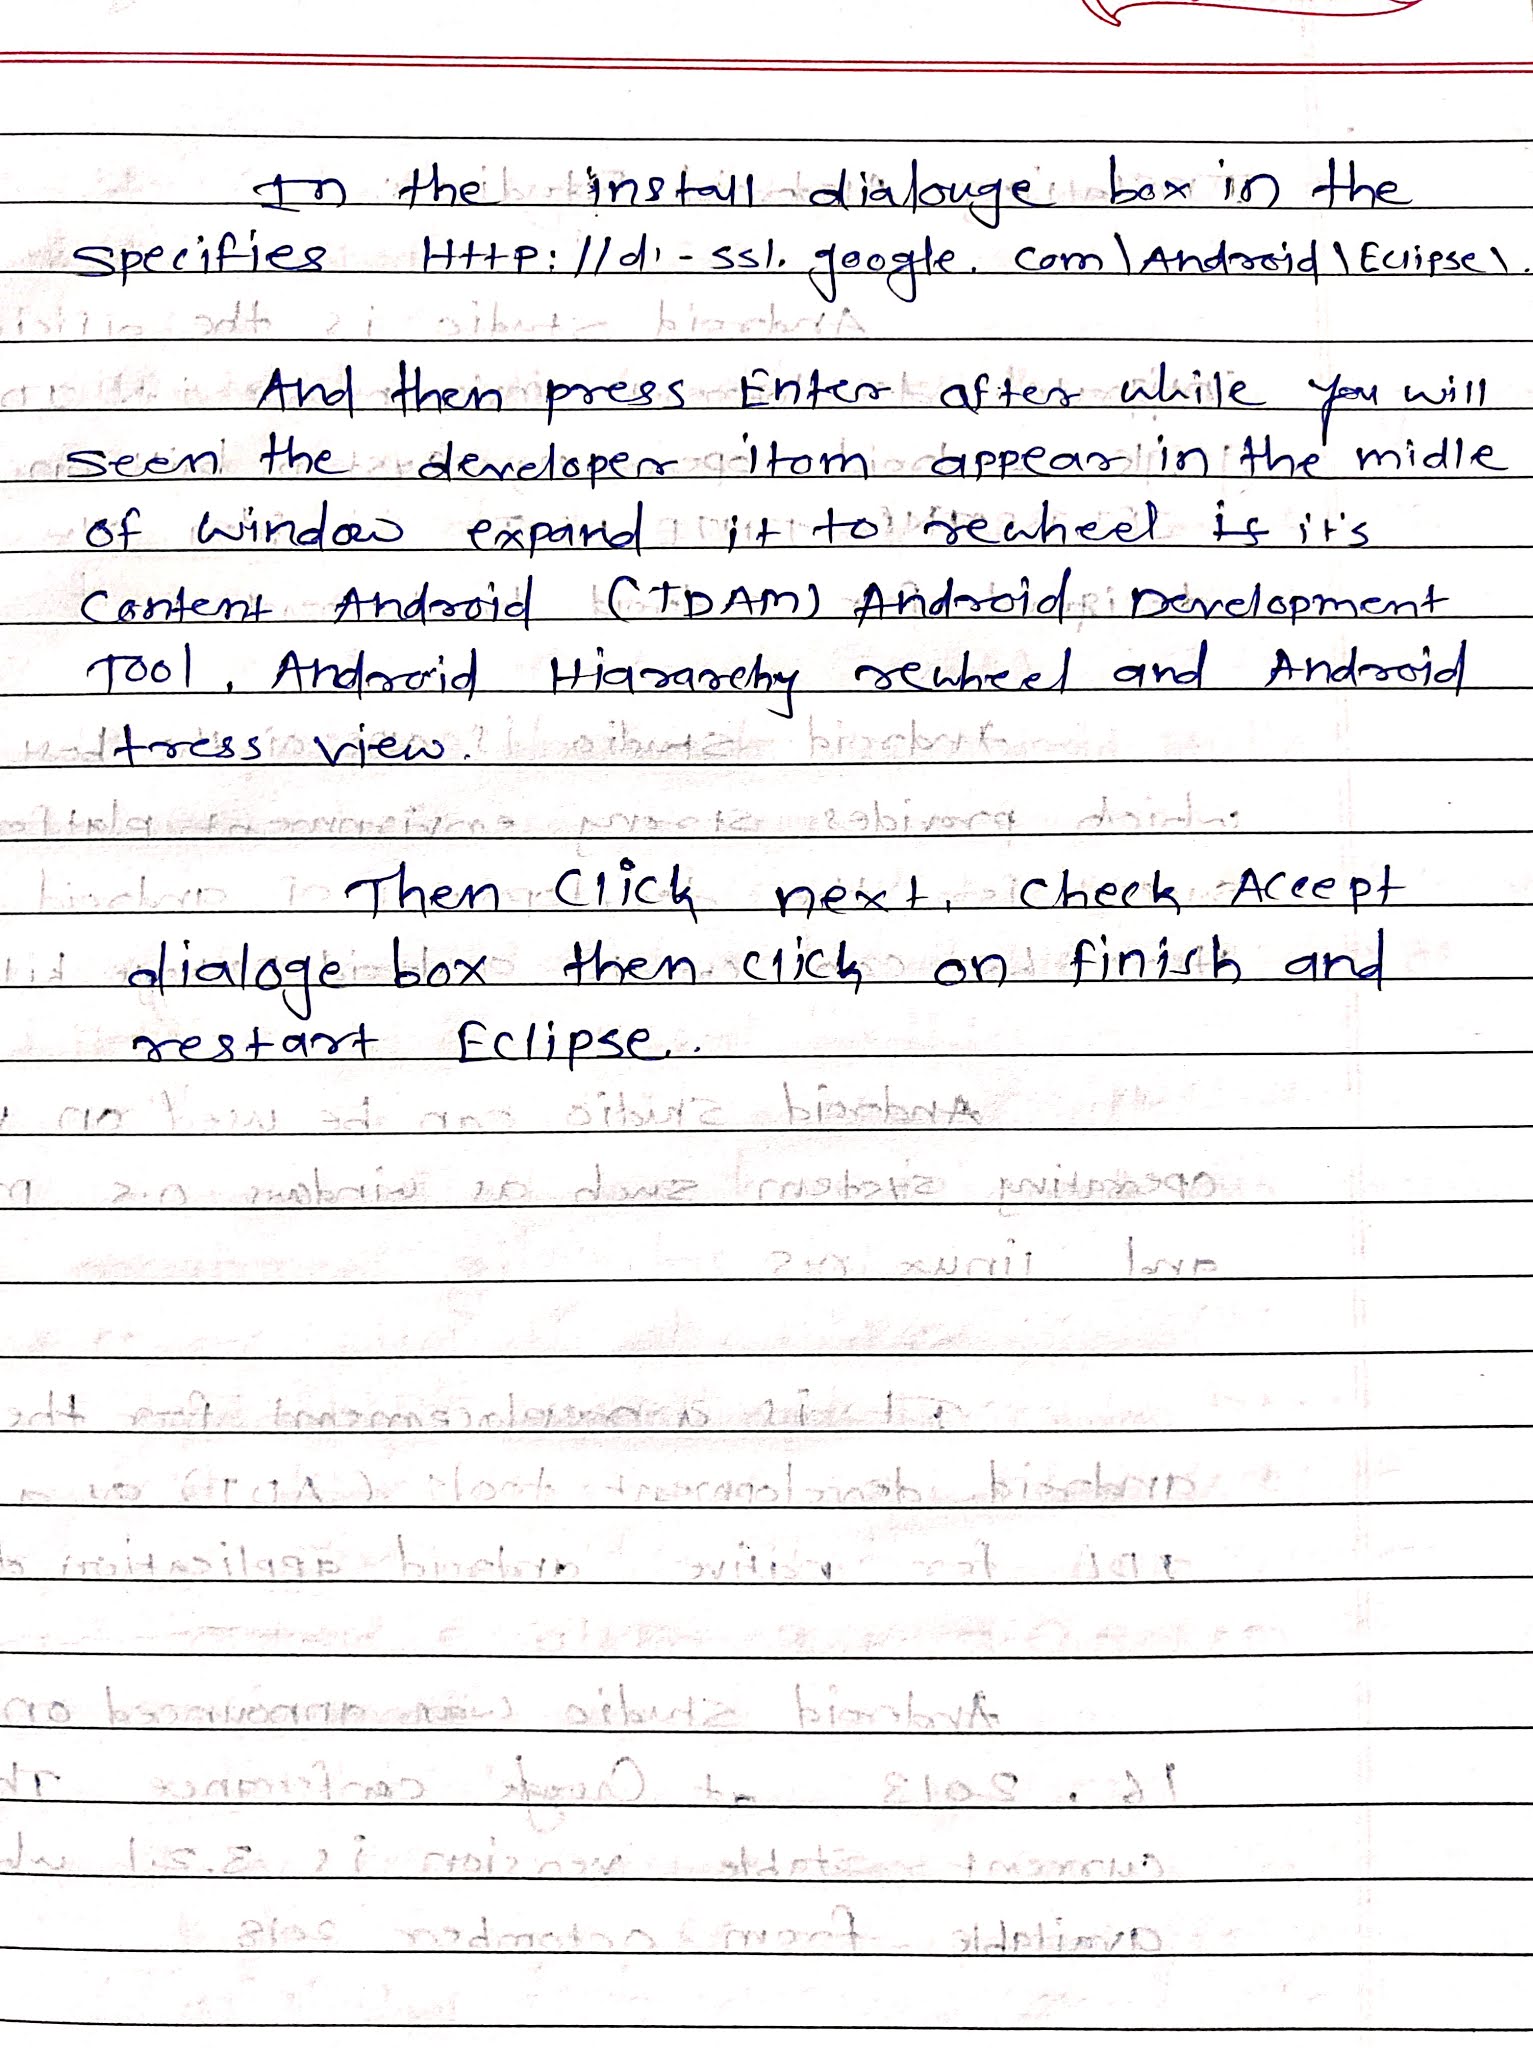 In the install dialouge box in the
specifies Http://dl-ssl.google.com\Android\Eclipse\.
And then press Enter after while you will
seen the developer itom appear in the midle
of window expand it to rewheel is it's
content Android (TDAM) Android Development
Tool, Android Hiararchy rewheel and Android
tress view.
Then Click next, check Accept
dialoge box then click on finish and
restart Eclipse.